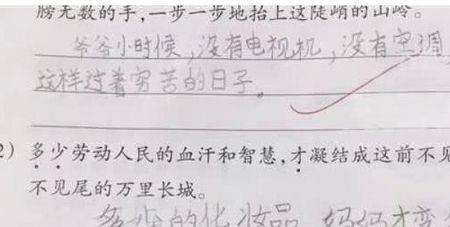 膀无数的手，一步一步地抬上这陡峭的山岭。
爷爷小时候，没有电视机，没有空调
这样过着穷苦的日子。
2）多少劳动人民的血汗和智慧，才凝结成这前不见
不见尾的万里长城。
多少的化妆品，妈妈才变